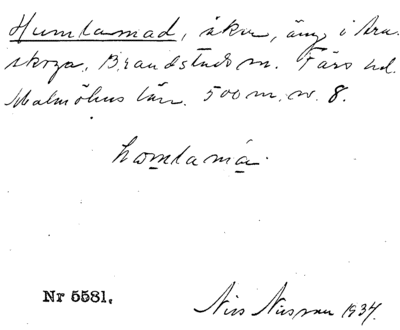 Humlamad, åker, äng i Ara-
skoga, Brandstads sn. Färs hd.
Malmöhus län. 500 m. nv. 8.
homlamá.
Nr 5581.
Nils Nilsson 1934.